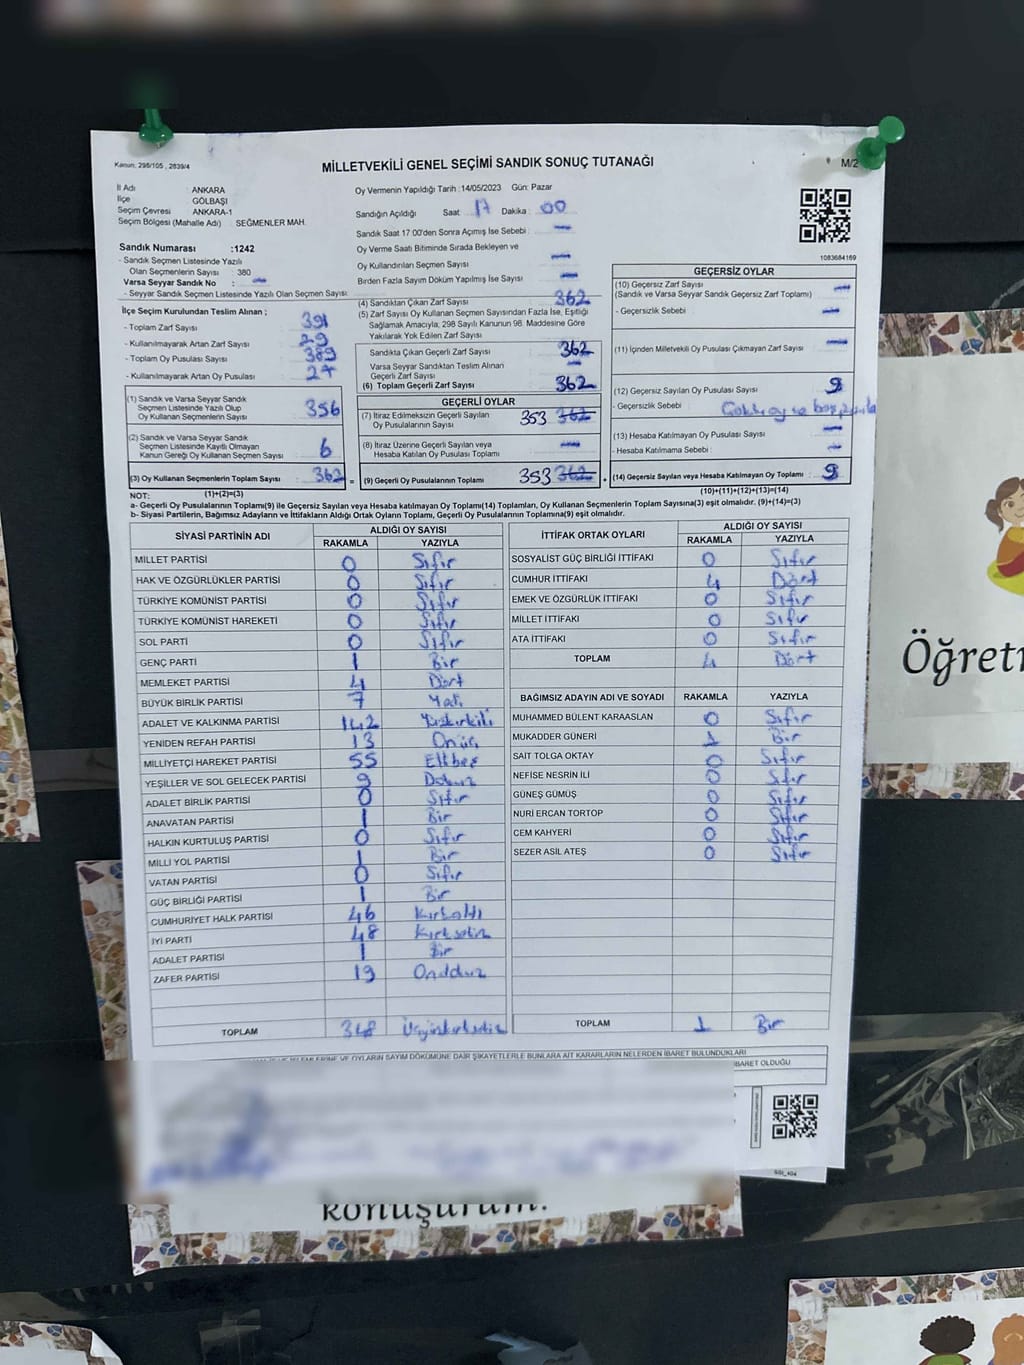 Kanun, 298/105 , 2839/4
MİLLETVEKİLİ GENEL SEÇİMİ SANDIK SONUÇ TUTANAĞI
M/2
İl Adı : ANKARA
İlçe : GÖLBAŞI
Seçim Çevresi : ANKARA-1
Seçim Bölgesi (Mahalle Adı) : SEĞMENLER MAH.
Sandık Numarası :1242
- Sandık Seçmen Listesinde Yazılı
Olan Seçmenlerin Sayısı : 380
Varsa Seyyar Sandık No : —
- Seyyar Sandık Seçmen Listesinde Yazılı Olan Seçmen Sayısı:
İlçe Seçim Kurulundan Teslim Alınan ;
- Toplam Zarf Sayısı : 391
- Kullanılmayarak Artan Zarf Sayısı : 29
- Toplam Oy Pusulası Sayısı : 389
- Kullanılmayarak Artan Oy Pusulası : 27
(1) Sandık ve Varsa Seyyar Sandık
Seçmen Listesinde Yazılı Olup
Oy Kullanan Seçmenlerin Sayısı : 356
(2) Sandık ve Varsa Seyyar Sandık
Seçmen Listesinde Kayıtlı Olmayan
Kanun Gereği Oy Kullanan Seçmen Sayısı : 6
(3) Oy Kullanan Seçmenlerin Toplam Sayısı : 362
(1)+(2)=(3)
Oy Vermenin Yapıldığı Tarih :14/05/2023 Gün: Pazar
Sandığın Açıldığı Saat 17 Dakika : 00
Sandık Saat 17.00'den Sonra Açımış İse Sebebi : —
Oy Verme Saati Bitiminde Sırada Bekleyen ve
Oy Kullandırılan Seçmen Sayısı : —
Birden Fazla Sayım Döküm Yapılmış İse Sayısı : —
(4) Sandıktan Çıkan Zarf Sayısı : 362
(5) Zarf Sayısı Oy Kullanan Seçmen Sayısından Fazla İse, Eşitliği
Sağlamak Amacıyla, 298 Sayılı Kanunun 98. Maddesine Göre
Yakılarak Yok Edilen Zarf Sayısı :
Sandıkta Çıkan Geçerli Zarf Sayısı : 362
Varsa Seyyar Sandıktan Teslim Alınan
Geçerli Zarf Sayısı : —
(6) Toplam Geçerli Zarf Sayısı : 362
GEÇERLİ OYLAR
(7) İtiraz Edilmeksizin Geçerli Sayılan
Oy Pusulalarının Sayısı : 353 362
(8) İtiraz Üzerine Geçerli Sayılan veya
Hesaba Katılan Oy Pusulası Toplamı : —
= (9) Geçerli Oy Pusulalarının Toplamı : 353 362 +
1083684169
GEÇERSİZ OYLAR
(10) Geçersiz Zarf Sayısı : —
(Sandık ve Varsa Seyyar Sandık Geçersiz Zarf Toplamı)
- Geçersizlik Sebebi : —
(11) İçinden Milletvekili Oy Pusulası Çıkmayan Zarf Sayısı : —
(12) Geçersiz Sayılan Oy Pusulası Sayısı : 9
- Geçersizlik Sebebi :
(13) Hesaba Katılmayan Oy Pusulası Sayısı : —
- Hesaba Katmama Sebebi : —
(14) Geçersiz Sayılan veya Hesaba Katılmayan Oy Toplamı : 9
(10)+(11)+(12)+(13)=(14)
NOT:
a- Geçerli Oy Pusulalarının Toplamı(9) ile Geçersiz Sayılan veya Hesaba katılmayan Oy Toplamı(14) Toplamları, Oy Kullanan Seçmenlerin Toplam Sayısına(3) eşit olmalıdır. (9)+(14)=(3)
b- Siyasi Partilerin, Bağımsız Adayların ve İttifakların Aldığı Ortak Oyların Toplamı, Geçerli Oy Pusulalarının Toplamına(9) eşit olmalıdır.
SİYASİ PARTİNİN ADI ALDIĞI OY SAYISI
RAKAMLA YAZIYLA
MİLLET PARTİSİ 0 Sıfır
HAK VE ÖZGÜRLÜKLER PARTİSİ 0 Sıfır
TÜRKİYE KOMÜNİST PARTİSİ 0 Sıfır
TÜRKİYE KOMÜNİST HAREKETİ 0 Sıfır
SOL PARTİ 0 Sıfır
GENÇ PARTİ 1 Bir
MEMLEKET PARTİSİ 4 Dört
BÜYÜK BİRLİK PARTİSİ 7 Yedi
ADALET VE KALKINMA PARTİSİ 142 Yüzkırkiki
YENİDEN REFAH PARTİSİ 13 Onüç
MİLLİYETÇİ HAREKET PARTİSİ 55 Ellibeş
YEŞİLLER VE SOL GELECEK PARTİSİ 9 Dokuz
ADALET BİRLİK PARTİSİ 0 Sıfır
ANAVATAN PARTİSİ 1 Bir
HALKIN KURTULUŞ PARTİSİ 0 Sıfır
MİLLİ YOL PARTİSİ 1 Bir
VATAN PARTİSİ 0 Sıfır
GÜÇ BİRLİĞİ PARTİSİ 1 Bir
CUMHURİYET HALK PARTİSİ 46 Kırkaltı
İYİ PARTİ 48 Kırksekiz
ADALET PARTİSİ 1 Bir
ZAFER PARTİSİ 19 Ondokuz
TOPLAM 348 Üçyüzkırksekiz
İTTİFAK ORTAK OYLARI ALDIĞI OY SAYISI
RAKAMLA YAZIYLA
SOSYALİST GÜÇ BİRLİĞİ İTTİFAKI 0 Sıfır
CUMHUR İTTİFAKI 4 Dört
EMEK VE ÖZGÜRLÜK İTTİFAKI 0 Sıfır
MİLLET İTTİFAKI 0 Sıfır
ATA İTTİFAKI 0 Sıfır
TOPLAM 4 Dört
BAĞIMSIZ ADAYIN ADI VE SOYADI RAKAMLA YAZIYLA
MUHAMMED BÜLENT KARAASLAN 0 Sıfır
MUKADDER GÜNERİ 1 Bir
SAİT TOLGA OKTAY 0 Sıfır
NEFİSE NESRİN İLİ 0 Sıfır
GÜNEŞ GÜMÜŞ 0 Sıfır
NURİ ERCAN TORTOP 0 Sıfır
CEM KAHYERİ 0 Sıfır
SEZER ASIL ATEŞ 0 Sıfır
TOPLAM 1 Bir
VE OYLARIN SAYIM DÖKÜMÜNE DAİR ŞİKAYETLERLE BUNLARA AİT KARARLARIN NELERDEN İBARET BULUNDUKLARI
İBARET OLDUĞU
konuşurum.